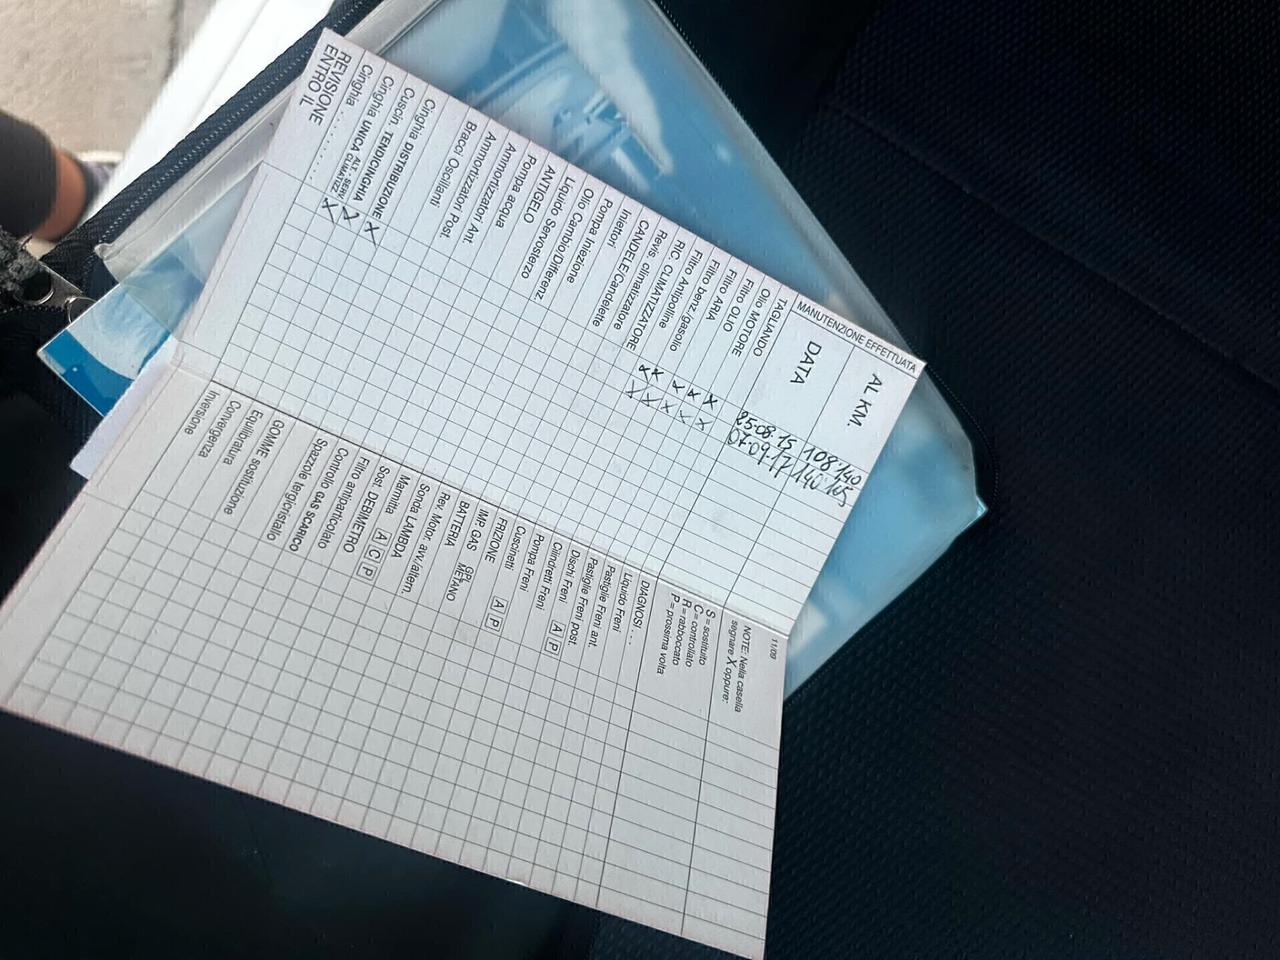 MANUTENZIONE EFFETTUATA
AL KM. 108140 140165
DATA 25.08.15 07.09.17
TAGLIANDO
Olio MOTORE X X
Filtro OLIO X X
Filtro ARIA X X
Filtro benz./gasolio X X
Filtro Antipolline X X
RIC. CLIMATIZZATORE
Revis. climatizzatore
CANDELE/Candelette
Iniettori
Pompa Iniezione
Olio Cambio/Differenz.
Liquido Servosterzo
ANTIGELO
Pompa acqua
Ammortizzatori Ant.
Ammortizzatori Post.
Bracci Oscillanti
Cinghia DISTRIBUZIONE X
Cuscin. TENDICINGHIA X
Cinghia UNICA ALT. - SERV. CLIMATIZZ. X
Cinghia ..........
REVISIONE
ENTRO IL
11/09
NOTE: Nella casella
segnare X oppure:
S = sostituito
C = controllato
R = rabboccato
P = prossima volta
DIAGNOSI ....
Liquido Freni
Pastiglie Freni ant.
Pastiglie Freni post.
Dischi Freni A P
Cilindretti Freni
Pompa Freni
Cuscinetti A P
FRIZIONE
IMP. GAS GPL METANO
BATTERIA
Rev. Motor. avv./altern.
Sonda LAMBDA
Marmitta A C P
Sost. DEBIMETRO
Filtro antiparticolato
Controllo GAS SCARICO
Spazzole tergicristallo
GOMME sostituzione
Equilibratura
Convergenza
Inversione